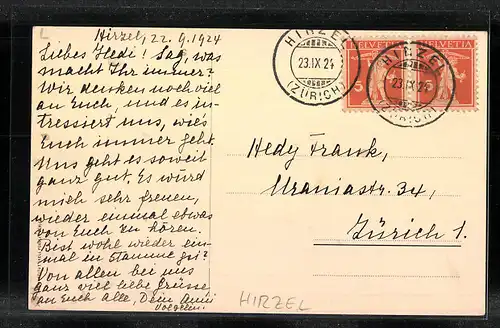 L
Hirzel, 22.9.1924
Liebes Hedi! Sag, was
macht Ihr immer?
Wir denken noch viel
an Euch, und es in-
tressiert uns, wie's
Euch immer geht.
Uns geht es soweit
ganz gut. Es würd
mich sehr freuen,
wieder einmal etwas
von Euch zu hören.
Bist wohl wieder ein-
mal in
Von allen bei uns
ganz viel liebe Grüsse
an Euch alle, Dein
HIRZEL
23.IX 24
(ZÜRICH)
HELVETIA
5
HELVETIA
HIRZEL
23.IX 24
(ZÜRICH)
Hedy Frank,
Uraniastr. 34,
Zürich 1.
HIRZEL